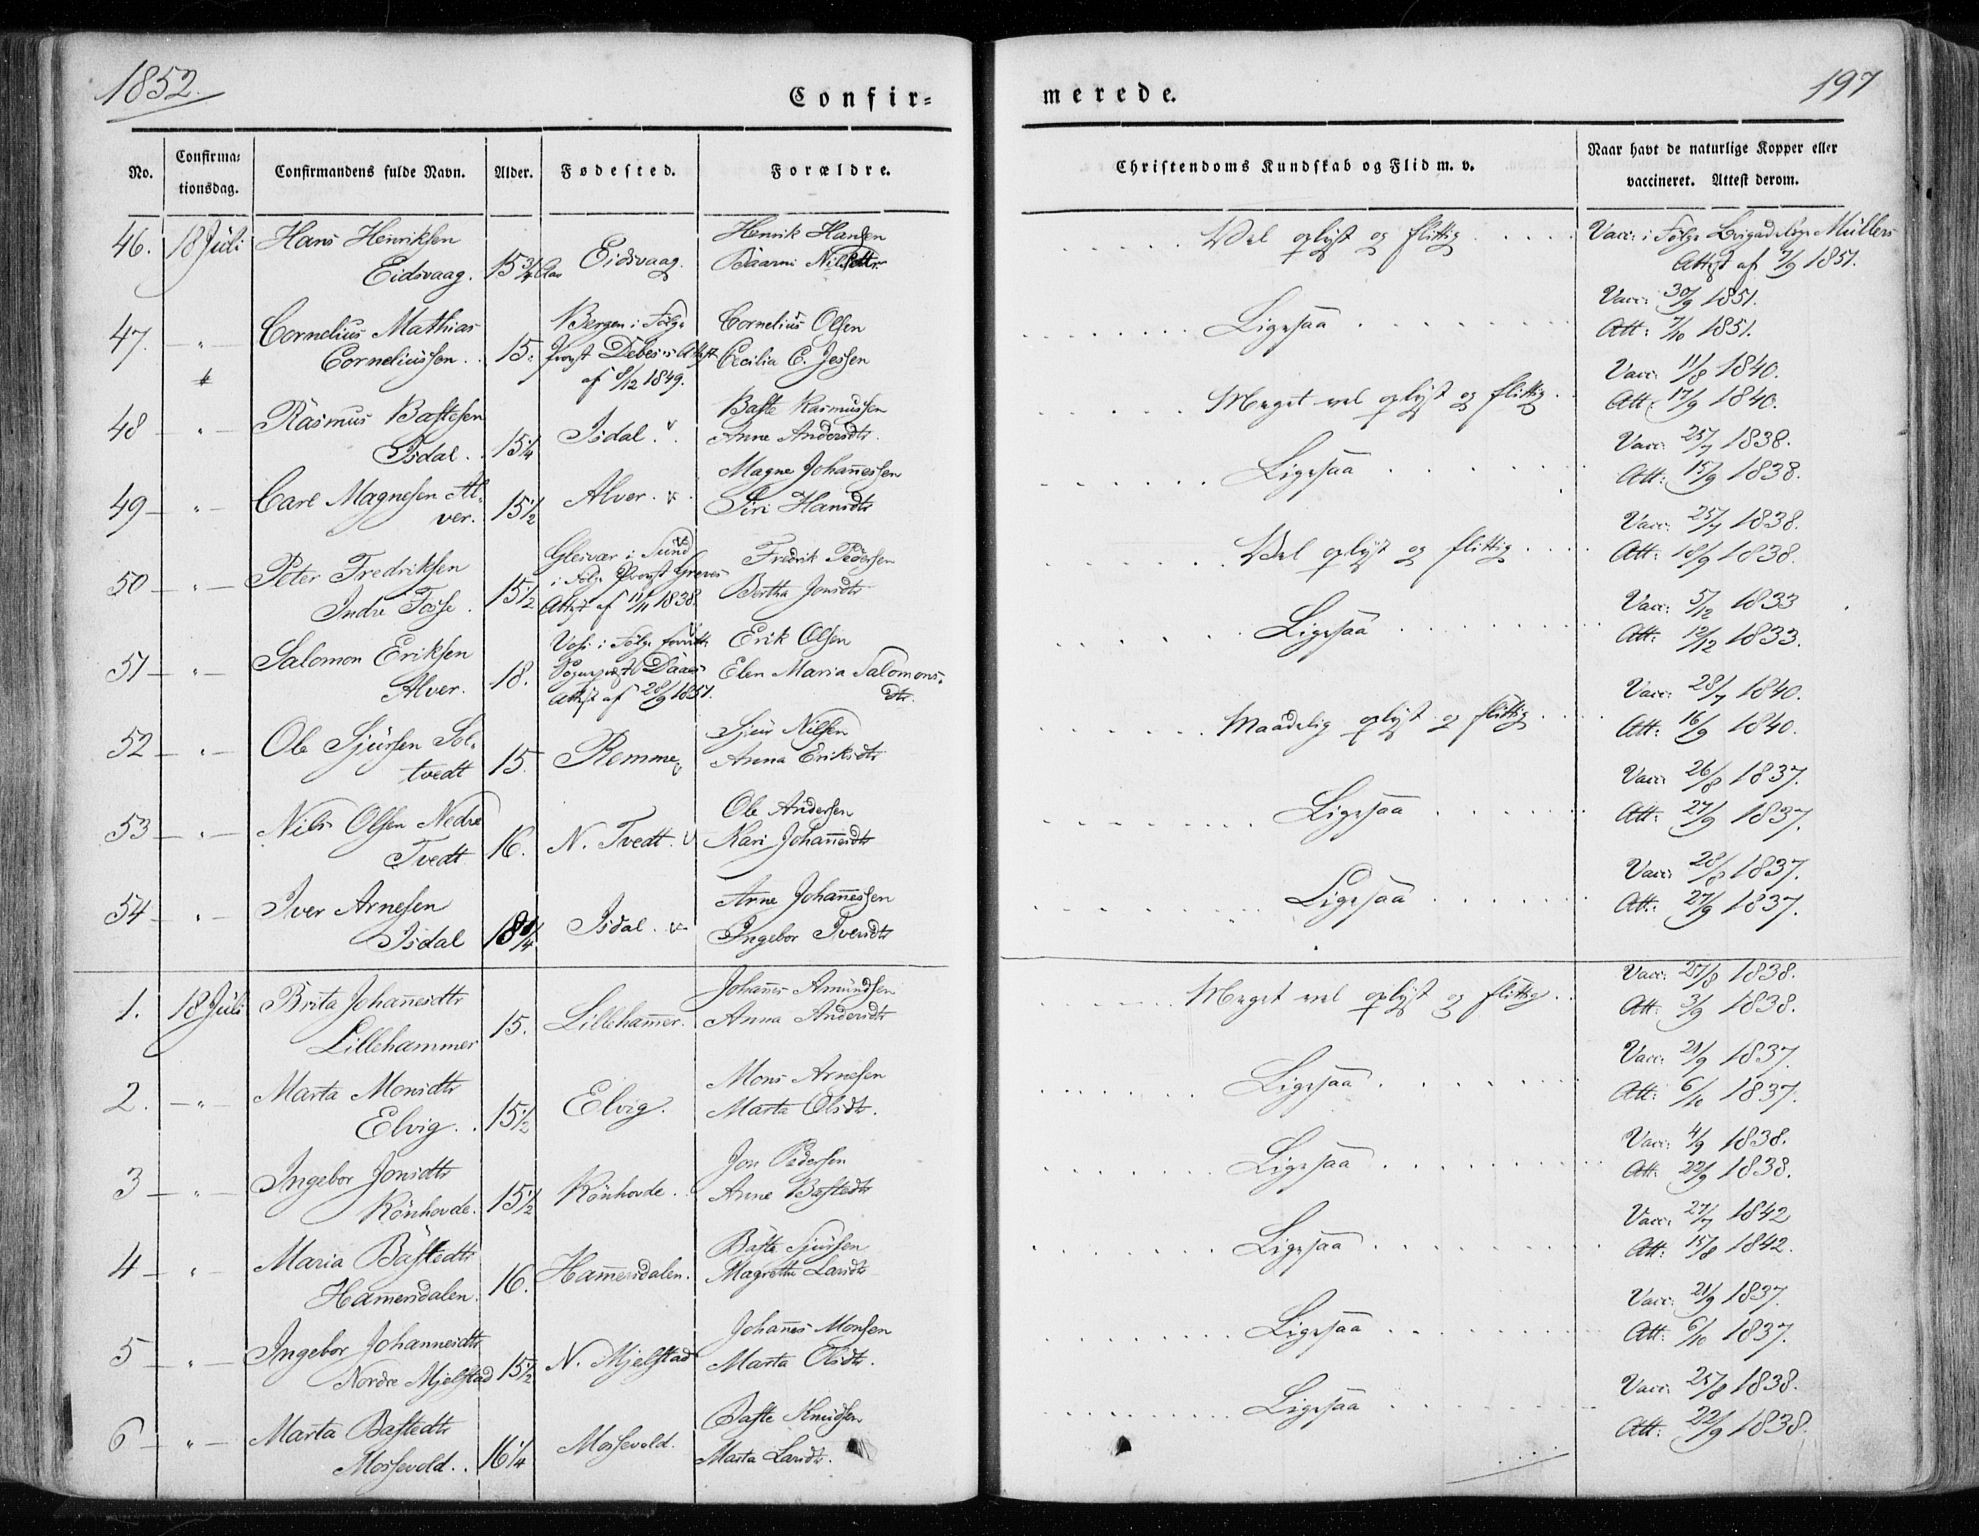 1852.
Confir=
merede.
197
No.
Confirma=
tionsdag.
Confirmandens fulde Navn.
Alder.
Fødested.
Forældre.
Christendoms Kundskab og Flid m. v.
Naar havt de naturlige Kopper eller
vaccineret. Attest derom.
46. 18 Juli Hans Henriksen
Eidsvaag. 15 3/4 Aar Eidsvaag. Henrik Hansen
Baarni Nilsdtr
Vel oplyst og flittig
Vacc: i Følge Brigadelæge Müllers
Attest af 7/9 1851.
47. - " - Cornelius Mathias
Corneliussen. 15. Bergen i Følge
Provst Debes's Attest
af 8/12 1849.
Cornelius Olsen
Cecilia C. Jessen
Ligesaa
Vacc: 30/9 1851.
Att: 7/10 1851.
48 - " - Rasmus Bastesen
Isdal. 15 1/4 Isdal. Baste Rasmussen
Anne Andersdtr.
Meget vel oplyst og flittig
Vacc: 11/8 1840.
Att: 17/9 1840.
49 - " - Carl Magnesen Al-
ver. 15 1/2 Alver. Magne Johannessen
Siri Hansdtr
Ligesaa
Vacc: 25/7 1838.
Att: 15/9 1838.
50 - " - Peter Fredriksen
Indre Fosse. 15 1/2 Glesvær i Sund
i Følge Provst Greves
Attest af 11/11 1838.
Fredrik Pedersen
Bertha Jonsdtr
Vel oplyst og flittig
Vacc: 25/7 1838.
Att: 18/9 1838.
51 - " - Salomon Eriksen
Alver. 18. Voss i Følge
Sogneprest Daaes
Attest af 28/9 1851.
Erik Olsen
Elen Maria Salomons-
dtr.
Ligesaa
Vacc: 5/12 1833
Att: 12/12 1833.
52 - " - Ole Sjursen Sol-
tvedt 15. Remme Sjur Nilsen
Anna Eriksdtr
Maadelig oplyst og flittig
Vacc: 28/7 1840.
Att: 16/9 1840.
53 - " - Nils Olsen Nedre
Tvedt 16. N. Tvedt. Ole Andersen
Kari Johannesdtr
Ligesaa
Vacc: 26/8 1837.
Att: 27/9 1837.
54 - " - Iver Arnesen
Isdal 18 1/4 Isdal. Arne Johannessen
Ingebor Iversdtr
Ligesaa
Vacc: 28/8 1837.
Att: 27/9 1837.
1. 18 Juli Brita Johannesdtr
Lillehammer 15. Lillehammer. Johannes Amundsen
Anna Andersdtr
Meget vel oplyst og flittig
Vacc: 25/8 1838.
Att: 3/9 1838.
2. - " - Marta Monsdtr
Elvig. 15 1/2 Elvig. Mons Arnesen
Marta Olsdtr.
Ligesaa
Vacc: 21/9 1837.
Att: 6/10 1837.
3 - " - Ingebor Jonsdtr
Rönhovde. 15 1/2 Rönhovde. Jon Pedersen
Anne Bastedtr
Ligesaa
Vacc: 4/9 1838.
Att: 22/9 1838.
4 - " - Maria Bastedtr
Hamersdalen. 16. Hamersdalen. Baste Sjursen
Magrethe Larsdtr
Ligesaa
Vacc: 27/7 1842
Att: 15/8 1842.
5 - " - Ingebor Johannesdtr
Nordre Mjelstad 15 1/2 N. Mjelstad Johannes Monsen
Marta Olsdtr.
Ligesaa
Vacc: 21/9 1837.
Att: 6/10 1837.
6 - " - Marta Bastedtr
Mossevold. 16 1/4 Mossevold. Baste Knudsen
Marta Larsdtr.
Ligesaa
Vacc: 25/8 1838.
Att: 22/9 1838.